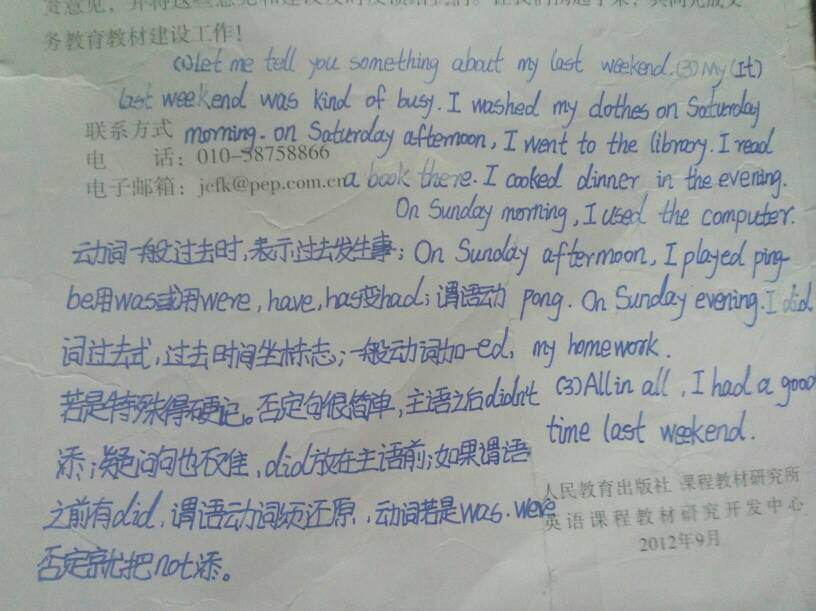 务教育教材建设工作!
(1)Let me tell you something about my last weekend.(3)My(It)
last weekend was kind of busy. I washed my clothes on Saturday
联系方式 morning. on Saturday afternoon, I went to the library. I read
电 话: 010-58758866
电子邮箱: jcfk@pep.com.cn a book there. I cooked dinner in the evening.
On Sunday morning, I used the computer.
On Sunday afternoon, I played ping-
pong. On Sunday evening. I did
my homework.
(3)All in all, I had a good
time last weekend.
动词一般过去时,表示过去发生事;
be用was或用were, have, has变had;谓语动
词过去式,过去时间坐标志;一般动词加-ed,
若是特殊得硬记。否定句很简单,主语之后didn't
添;疑问句也不难,did放在主语前;如果谓语
之前有did,谓语动词须还原,动词若是was. were
否定就把not添。
人民教育出版社 课程教材研究所
英语课程教材研究开发中心
2012年9月